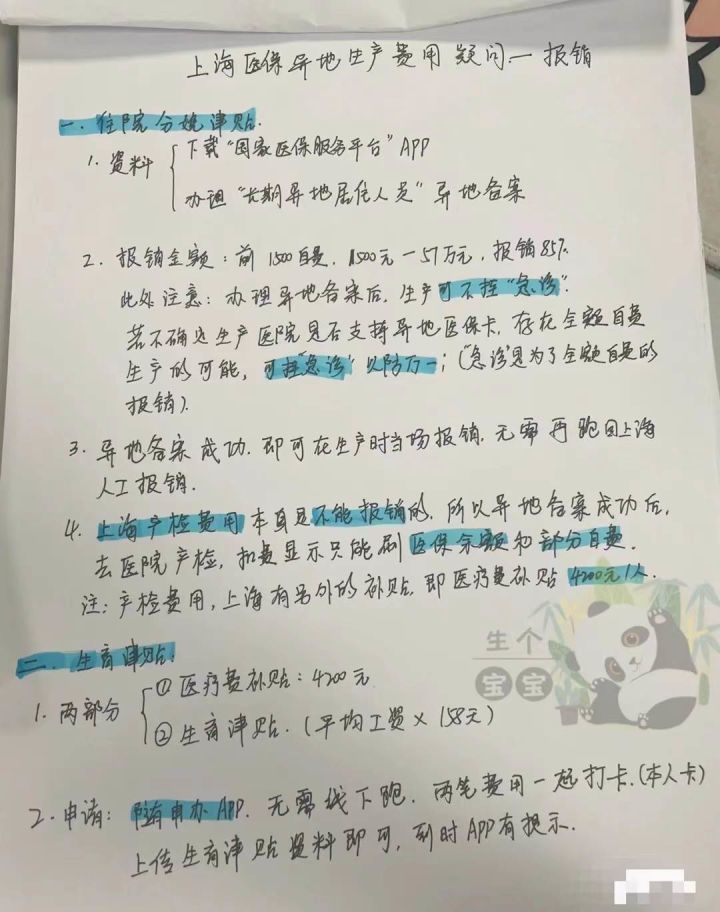 上海医保异地生产费用疑问—报销
一、住院分娩津贴.
1. 资料
下载"国家医保服务平台"APP
办理"长期异地居住人员"异地备案
2. 报销金额:前1500自费,1500元—57万元,报销85%
此外注意:办理异地备案后,生产可不挂"急诊".
若不确定生产医院是否支持异地医保卡,存在全额自费
生产的可能,可挂"急诊"以防万一;("急诊"是为了全额自费的
报销).
3. 异地备案成功,即可在生产时当场报销,无需再跑回上海
人工报销.
4. 上海产检费用本身是不能报销的,所以异地备案成功后,
去医院产检,扣费显示只能刷医保余额和部分自费.
注:产检费用,上海有另外的补贴,即医疗费补贴4200元/人.
二、生育津贴:
1. 两部分
①医疗费补贴:4200元
②生育津贴.(平均工资×158天)
2. 申请:随申办APP.无需线下跑.两笔费用一起打卡.(本人卡)
上传生育津贴资料即可,到时APP有提示.
生个
宝宝